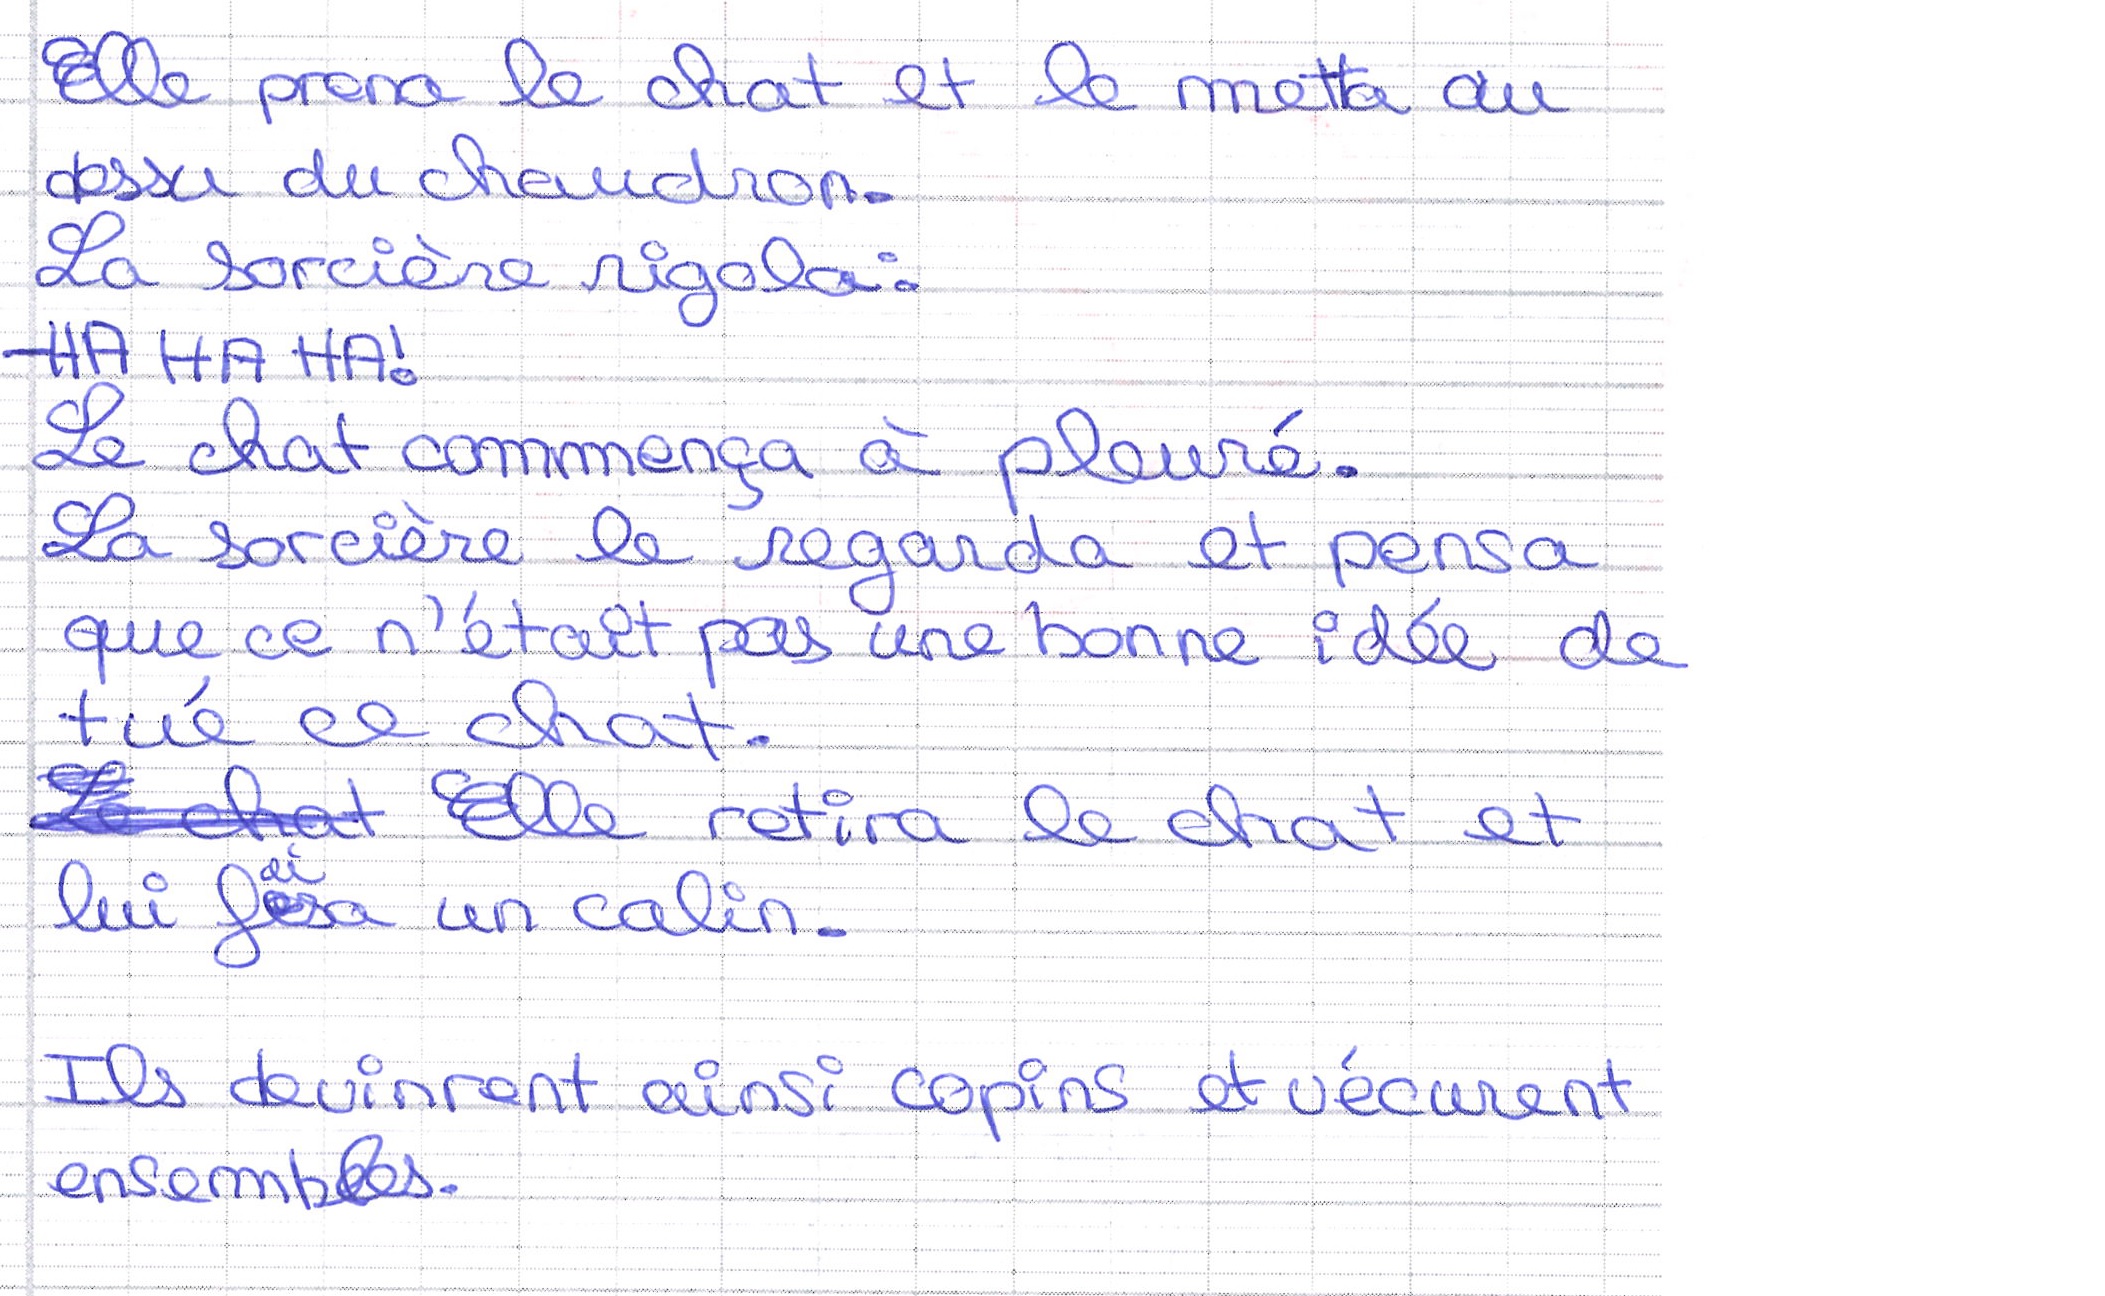 Elle prena le chat et le metta au
dessu du chaudron.
La sorcière rigola :
-HA HA HA!
Le chat commença à pleuré.
La sorcière le regarda et pensa
que ce n'était pas une bonne idée de
tué ce chat.
Le chat Elle retira le chat et
lui faisa un calin.
Ils devinrent ainsi copins et vécurent
ensembles.